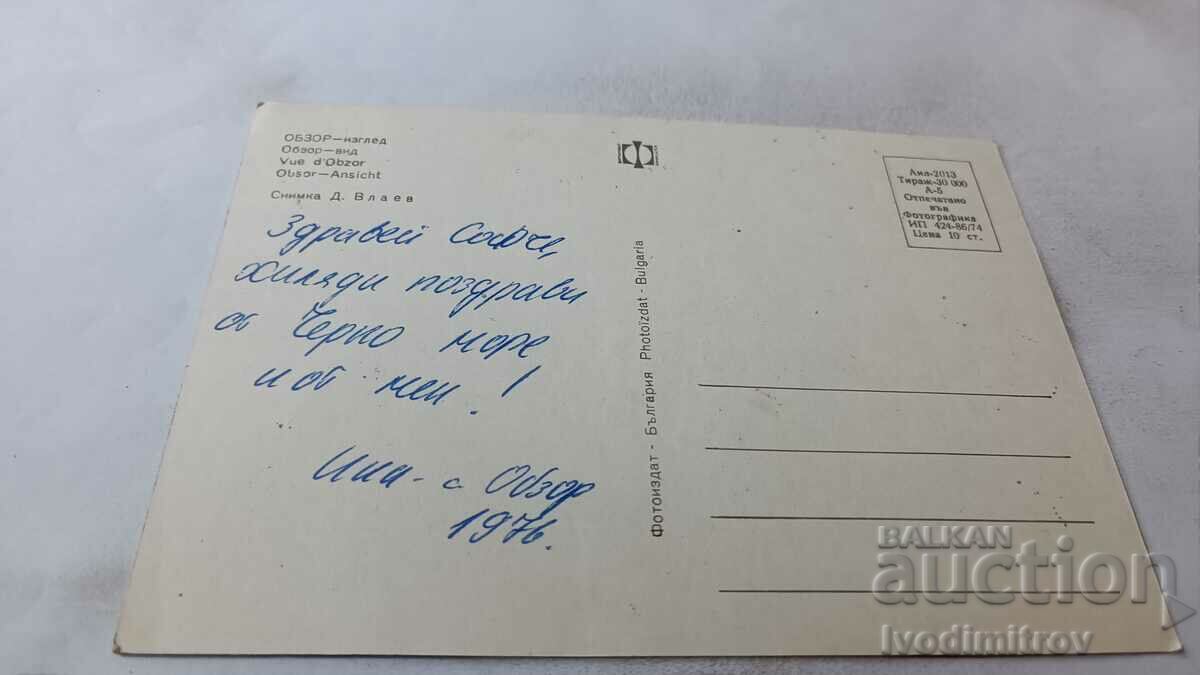 ОБЗОР—изглед
Обзор—вид
Vue d'Obzor
Obsor—Ansicht
Снимка Д. Влаев
Здравей Софче,
хиляди поздрави
от Черно море
и от мен!
Ина - с Обзор
1976.
Фотоиздат - България Photoizdat - Bulgaria
Аил-2013
Тираж-30 000
А-5
Отпечатано
във
Фотографика
ИП 424-86/74
Цена 10 ст.
BALKAN
auction
Ivodimitrov